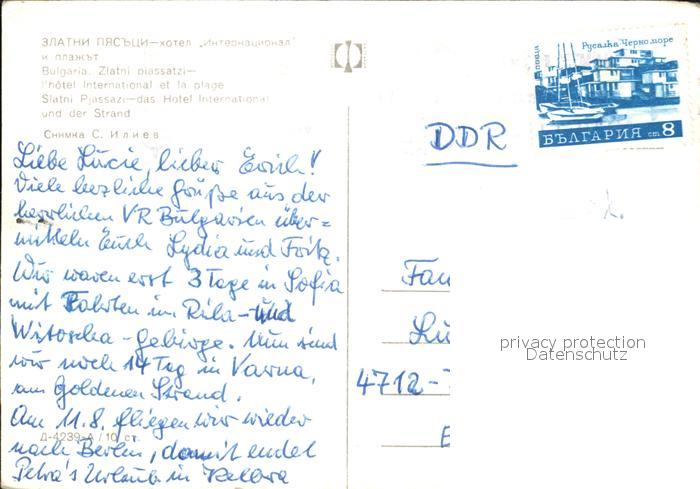 ЗЛАТНИ ПЯСЪЦИ—хотел „Интернационал"
и плажът
Bulgaria. Zlatni piassatzi—
l'hôtel International et la plage
Slatni Pjassazi—das Hotel International
und der Strand
Снимка С. Илиев
Liebe Lucie, lieber Erich!
Viele herzliche Grüße aus der
herrlichen VR Bulgarien über=
mitteln Euch Lydia und Fritz.
Wir waren erst 3 Tage in Sofia
mit Fahrten im Rila- und
Witoscha-gebirge. Nun sind
wir noch 14 Tag in Varna,
am Goldenen Strand.
Am 11.8. fliegen wir wieder
nach Berlin, damit endet
Petra's Urlaub in Kelbra
Д-4239-А / 10 ст.
Русалка Черно море
БЪЛГАРИЯ ст. 8
DDR
Fam
Lu
4712-
privacy protection
Datenschutz